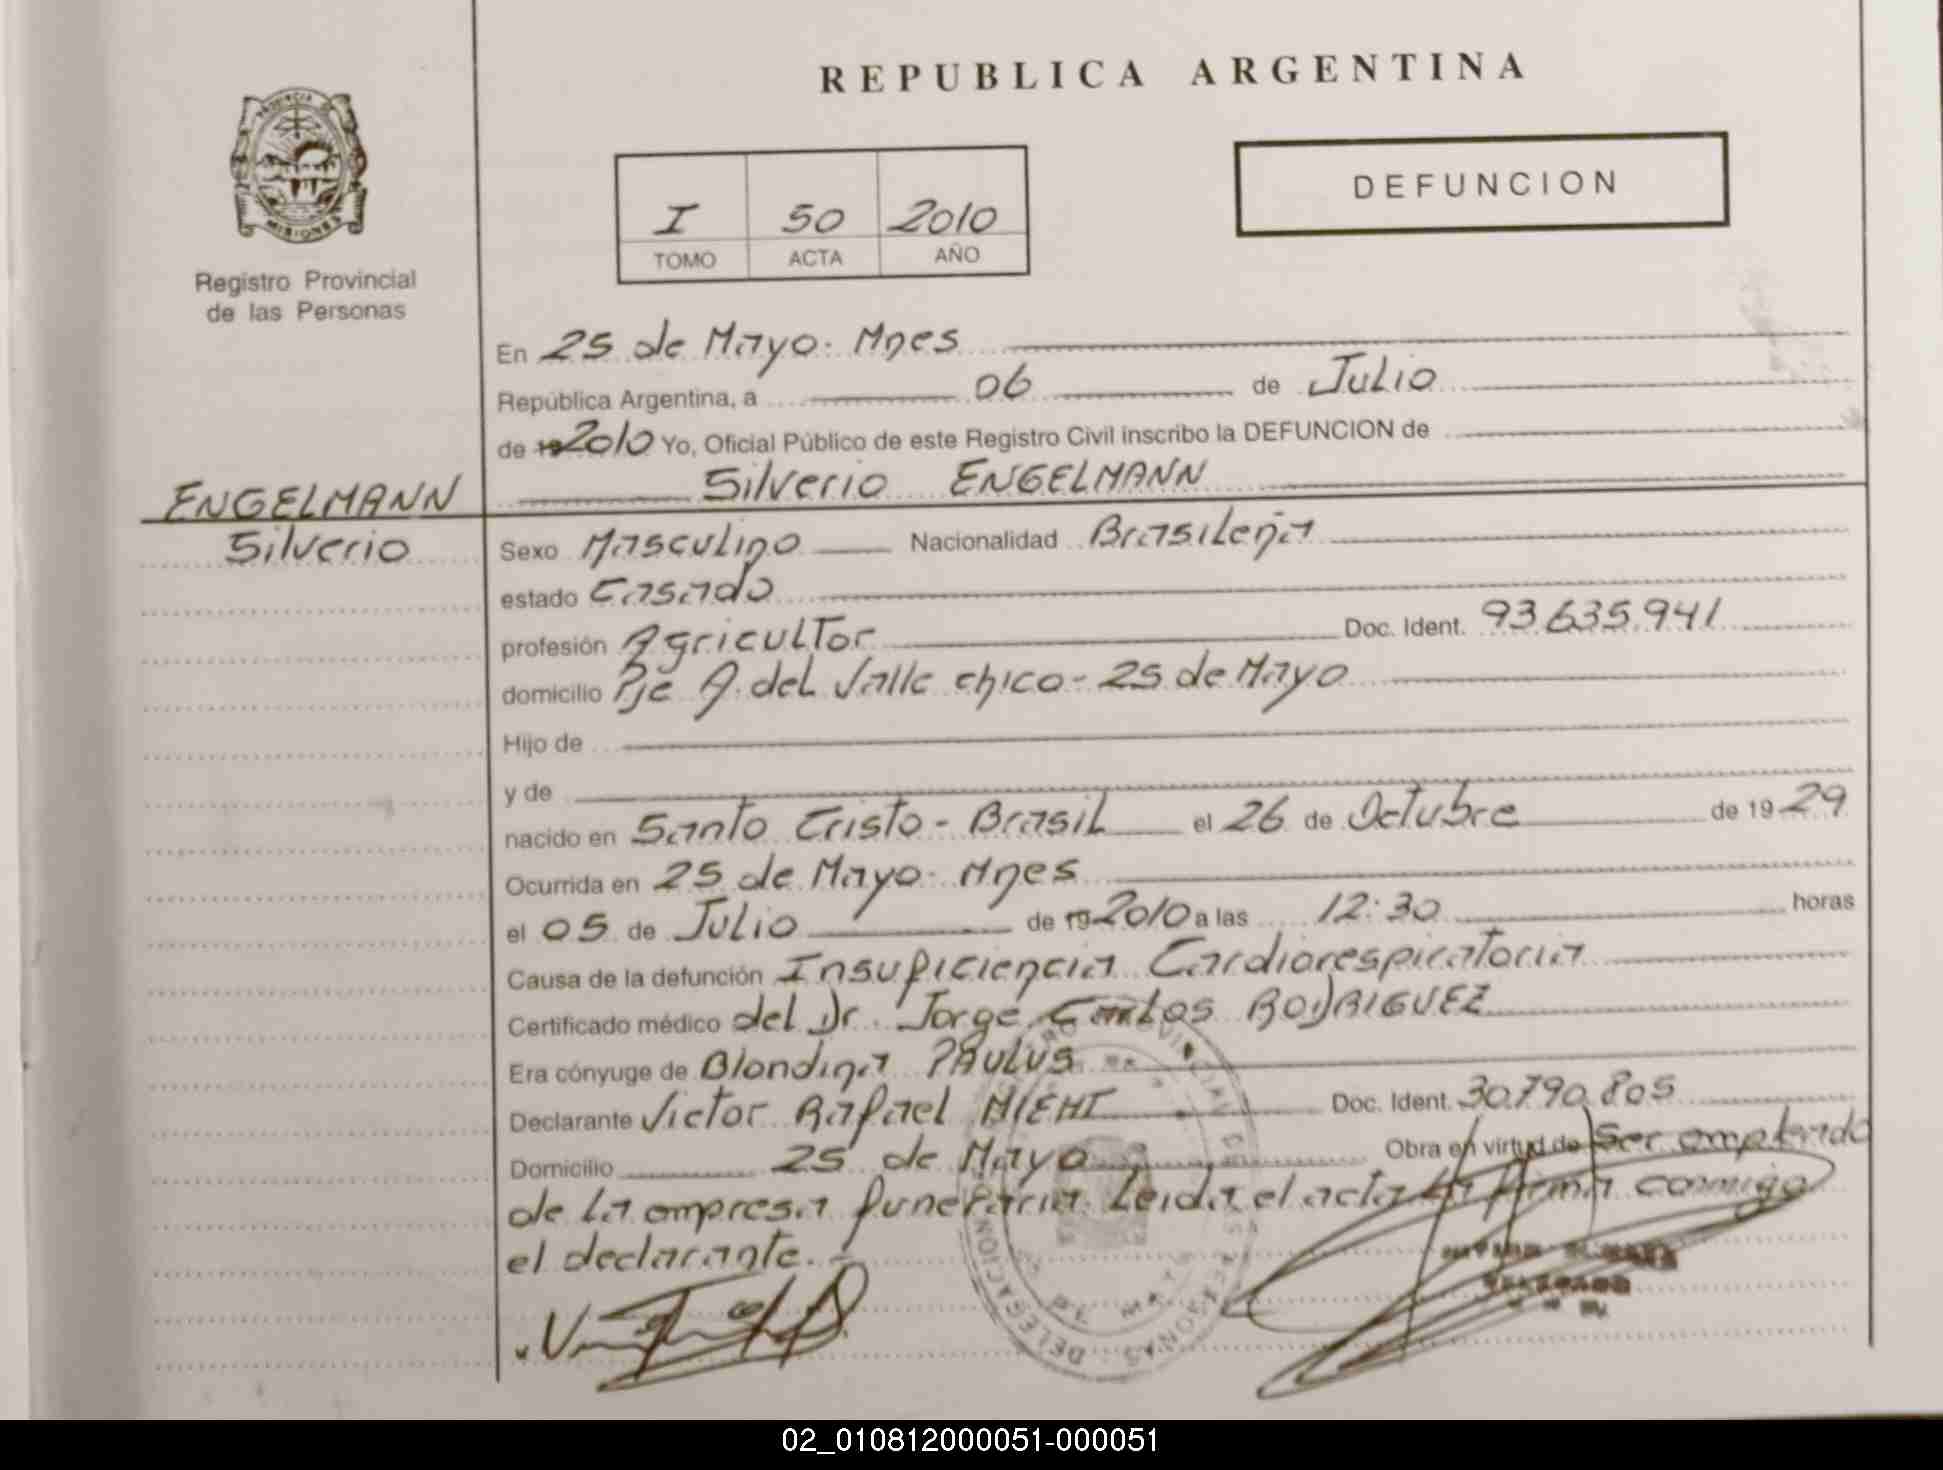 REPUBLICA ARGENTINA
PROVINCIA DE
MISIONES
Registro Provincial
de las Personas
I 50 2010
TOMO ACTA AÑO
DEFUNCION
En 25 de Mayo. Mnes
República Argentina, a 06 de Julio
de 19 2010 Yo, Oficial Público de este Registro Civil inscribo la DEFUNCION de
Silverio ENGELMANN
ENGELMANN
Silverio
Sexo Masculino Nacionalidad Brasileña
estado Casado
profesión Agricultor Doc. Ident. 93.635.941
domicilio Pje A. del Valle chico - 25 de Mayo
Hijo de
y de
nacido en Santo Cristo - Brasil el 26 de Octubre de 19 29
Ocurrida en 25 de Mayo. Mnes
el 05 de Julio de 19 2010 a las 12:30 horas
Causa de la defunción Insuficiencia Cardiorespiratoria
Certificado médico del Dr. Jorge Carlos RODRIGUEZ
Era cónyuge de Blondina PAULUS
Declarante Victor Rafael Doc. Ident. 30.790.805
Domicilio 25 de Mayo Obra en virtud de Ser empleado
de la empresa funeraria. Leida el acta la firma conmigo
el declarante.
02_010812000051-000051